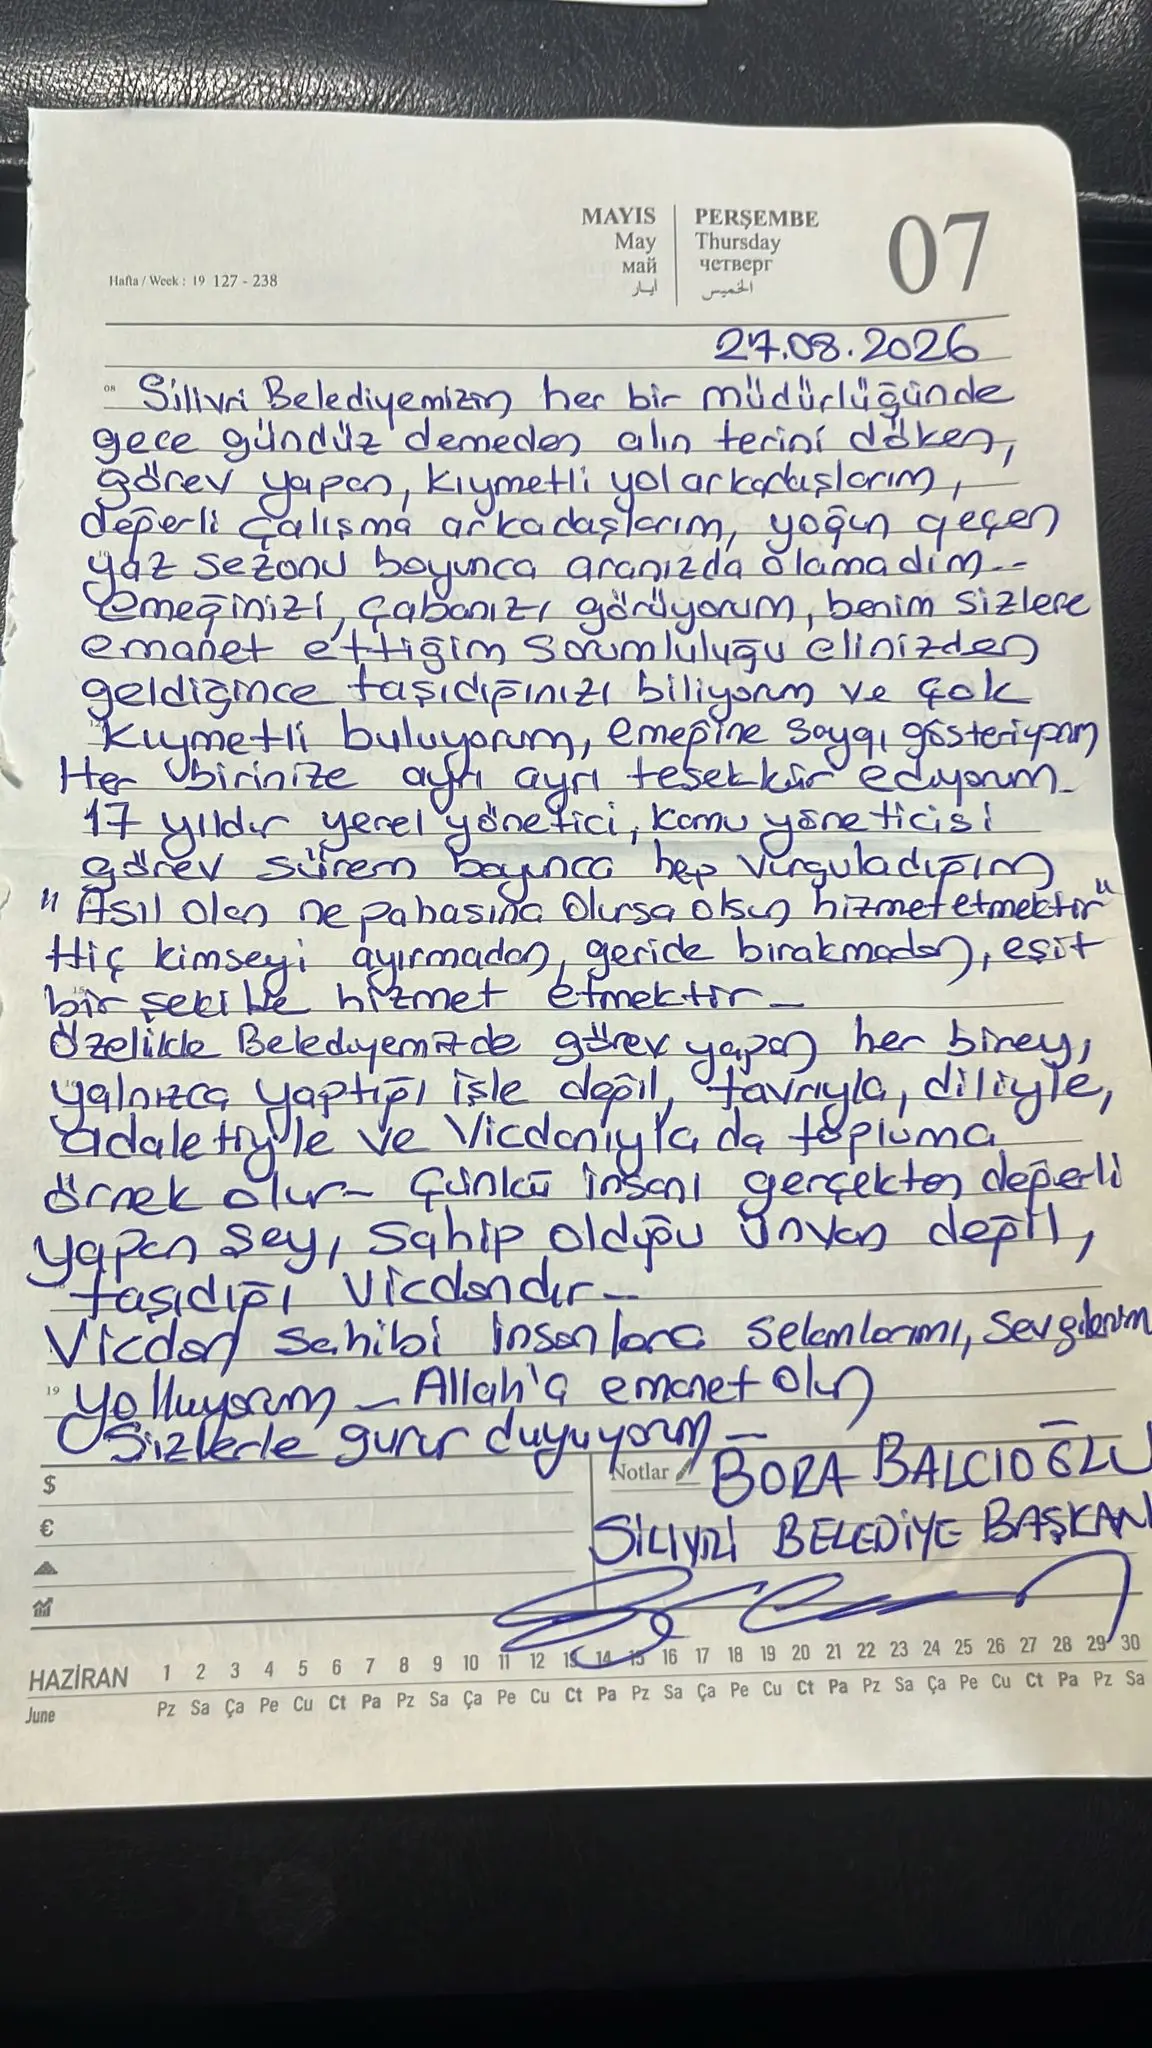 MAYIS PERŞEMBE 07
May Thursday
май четверг
أيار الخميس
Hafta / Week : 19 127 - 238
27.08.2026
08 Silivri Belediyemizin her bir müdürlüğünde
gece gündüz demeden alın terini döken,
görev yapan, kıymetli yol arkadaşlarım,
değerli çalışma arkadaşlarım, yoğun geçen
yaz sezonu boyunca aranızda olamadım--
emeğinizi, çabanızı görüyorum, benim sizlere
emanet ettiğim sorumluluğu elinizden
geldiğince taşıdığınızı biliyorum ve çok
kıymetli buluyorum, emeğine saygı gösteriyorum
Her birinize ayrı ayrı teşekkür ediyorum-
17 yıldır yerel yönetici, kamu yöneticisi
görev sürem boyunca hep vurguladığım
"Asıl olan ne pahasına olursa olsun hizmet etmektir"
Hiç kimseyi ayırmadan, geride bırakmadan, eşit
bir şekilde hizmet etmektir-
Özelikle Belediyemizde görev yapan her birey,
yalnızca yaptığı işle değil, tavrıyla, diliyle,
adaletiyle ve Vicdanıyla da topluma
örnek olur- Çünkü insanı gerçekten değerli
yapan şey, sahip olduğu ünvan değil,
taşıdığı vicdandır-
Vicdan sahibi insanlara selamlarımı, sevgilerimi
19 yolluyorum - Allah'a emanet olun
Sizlerle gurur duyuyorum -
$ Notlar BORA BALCIOĞLU
€ SİLİVRİ BELEDİYE BAŞKAN
HAZİRAN 1 2 3 4 5 6 7 8 9 10 11 12 13 14 15 16 17 18 19 20 21 22 23 24 25 26 27 28 29 30
June Pz Sa Ça Pe Cu Ct Pa Pz Sa Ça Pe Cu Ct Pa Pz Sa Ça Pe Cu Ct Pa Pz Sa Ça Pe Cu Ct Pa Pz Sa